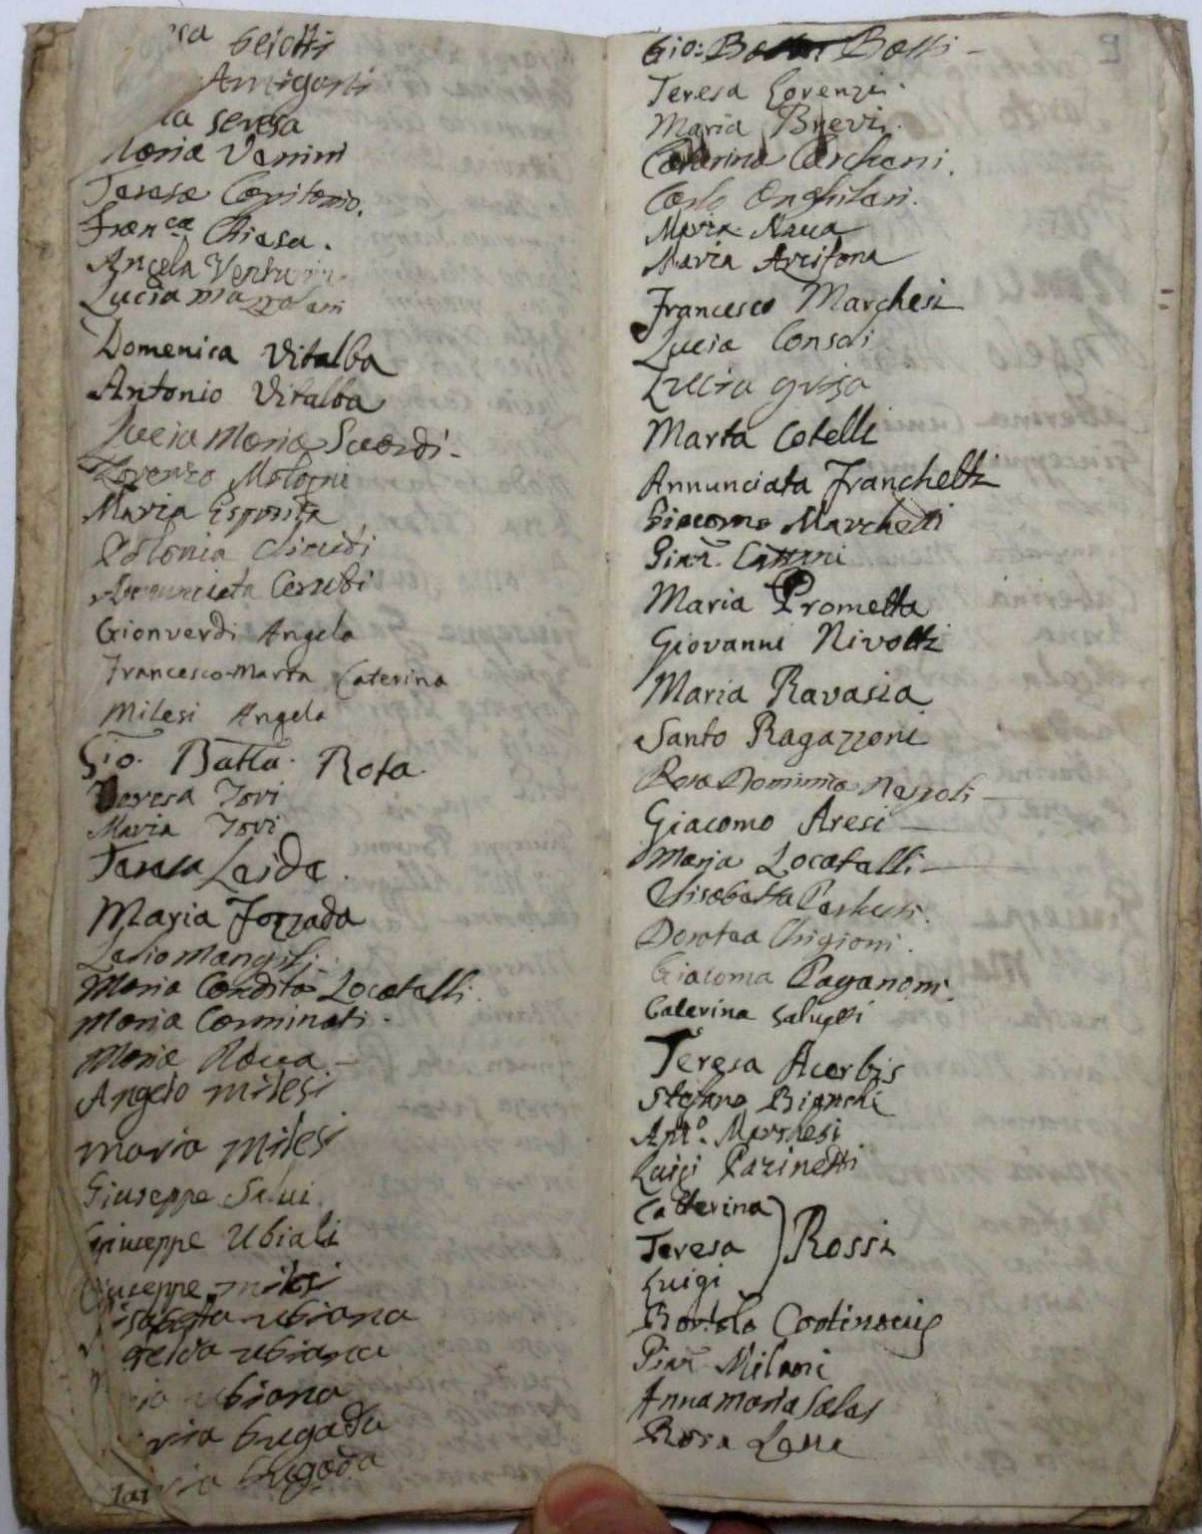 Belotti
Amigoni
la Seresa
Maria Vanini
Taresa
Fran.ca Chiesa.
Angela Venturin
Lucia
Domenica Vitalba
Antonio Vitalba
Lucia Maria Suardi-
Lorenzo Mologni
Maria Esposita
Polonia
Annunciata Cerubi
Gionverdi Angela
Francesco-Marta Caterina
Milesi Angela
Gio. Batta. Rota.
Teresa Tovi
Maria Tovi
Laida.
Maria Fozzada
Lelio Mangili
Maria Condita Locatalli.
Maria Carminati.
Maria
Angelo Milesi
Maria Milesi
Giuseppe Salui.
Giuseppe Ubiali
Giuseppe Milesi
ubiana
ubiana
ubiana
brugada
brugada
Gio: Botti -
Teresa Lorenzi.
Maria Brevi.
Catarina Carchani.
Carlo
Maria Naua
Maria Arcifona
Francesco Marchesi
Lucia Consoli
Lucia grisa
Marta Cotelli
Annunciata Franchetti
Giacomo Marchetti
Giar.
Maria Prometta
Giovanni Nivolti
Maria Ravasia
Santo Ragazzoni
Rosa Napoli
Giacomo Aresi
Maria Locatalli
Elisabatta
Dorotea Chigioni.
Giacoma Paganoni.
Caterina
Teresa Acerbis
Stefano Bianchi
Ant.o Marchesi
Luigi Parinetti
Catterina
Teresa } Rossi
Luigi
Bortolo
Milani
Anna Maria Salas
Rosa